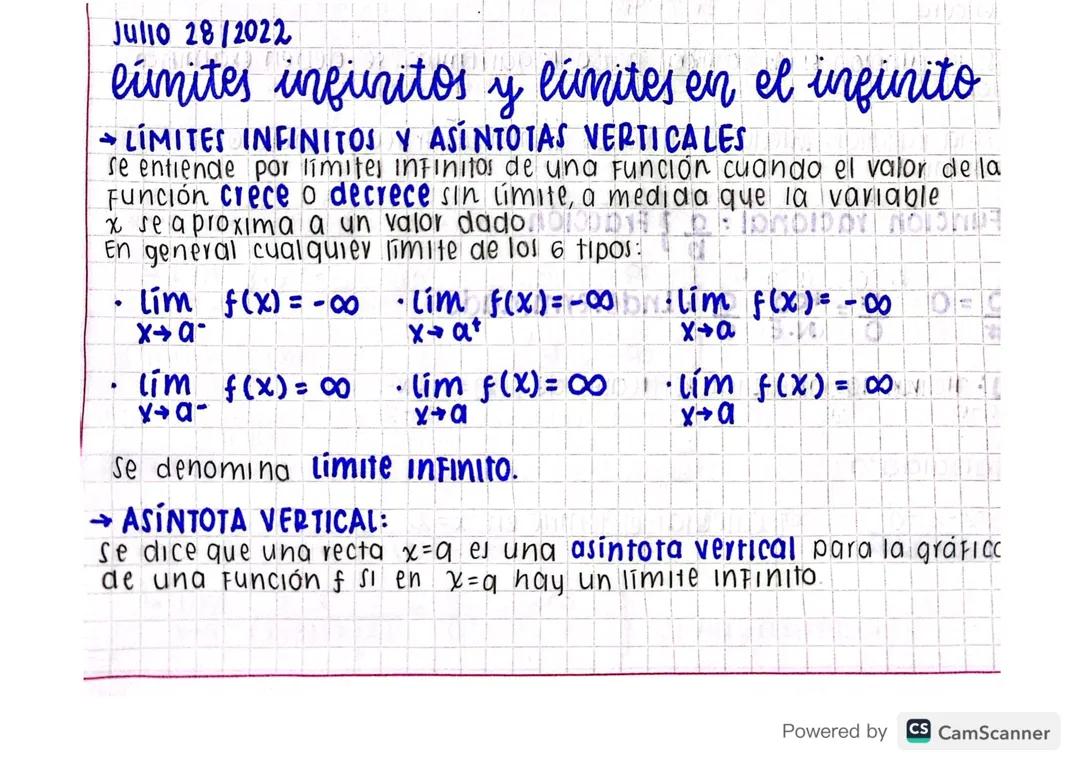 Julio 28/2022
límites infinitos y límites en el infinito
→ LÍMITES INFINITOS Y ASÍNTOTAS VERTICALES
Se entiende por límites infinitos de una función cuando el valor de la
función crece o decrece sin límite, a medida que la variable
x se aproxima a un valor dado.
En general cualquier límite de los 6 tipos:
· lím f(x) = -∞ · lím f(x) = -∞ · lím f(x) = -∞
x→a⁻ x→a⁺ x→a
· lím f(x) = ∞ · lím f(x) = ∞ · lím f(x) = ∞
x→a⁻ x→a x→a
se denomina límite infinito.
→ ASÍNTOTA VERTICAL:
Se dice que una recta x=a es una asíntota vertical para la gráfica
de una función f si en x=a hay un límite infinito.
Powered by CS CamScanner